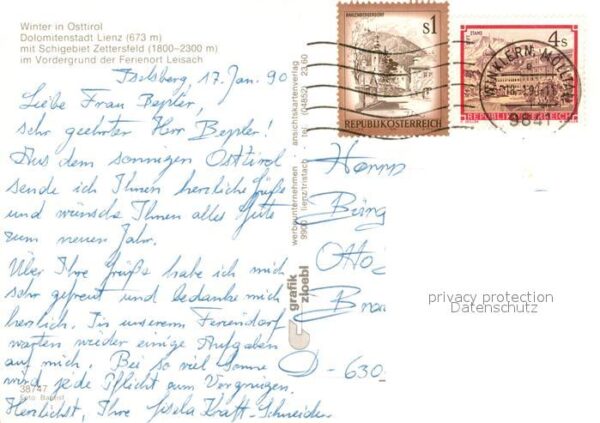 Winter in Osttirol
Dolomitenstadt Lienz (673 m)
mit Schigebiet Zettersfeld (1800–2300 m)
im Vordergrund der Ferienort Leisach
Iselsberg, 17. Jan. 90
Liebe Frau
sehr geehrter Herr
Aus dem sonnigen Osttirol
sende ich Ihnen herzliche Grüße
und wünsche Ihnen alles Gute
zum neuen Jahr.
Über Ihre Grüße habe ich mich
sehr gefreut und bedanke mich
herzlich. In unserem Feriendorf
warten wieder einige Aufgaben
auf mich. Bei so viel Sonne
wird jede Pflicht zum Vergnügen.
Herzlichst, Ihre Gisela Kraft-Schneider
38747
Foto: Baptist
werbeunternehmen ansichtskartenverlag
9900 lienz/tristach tel. (04852) 23 60
grafik
zloebl
s1
REPUBLIK ÖSTERREICH
4s
STAMS
REPUBLIK ÖSTERREICH
WINKLERN, MÖLLTAL
18.-1.90-15
9841
Herrn
Bürg
Otto
D - 630
privacy protection
Datenschutz